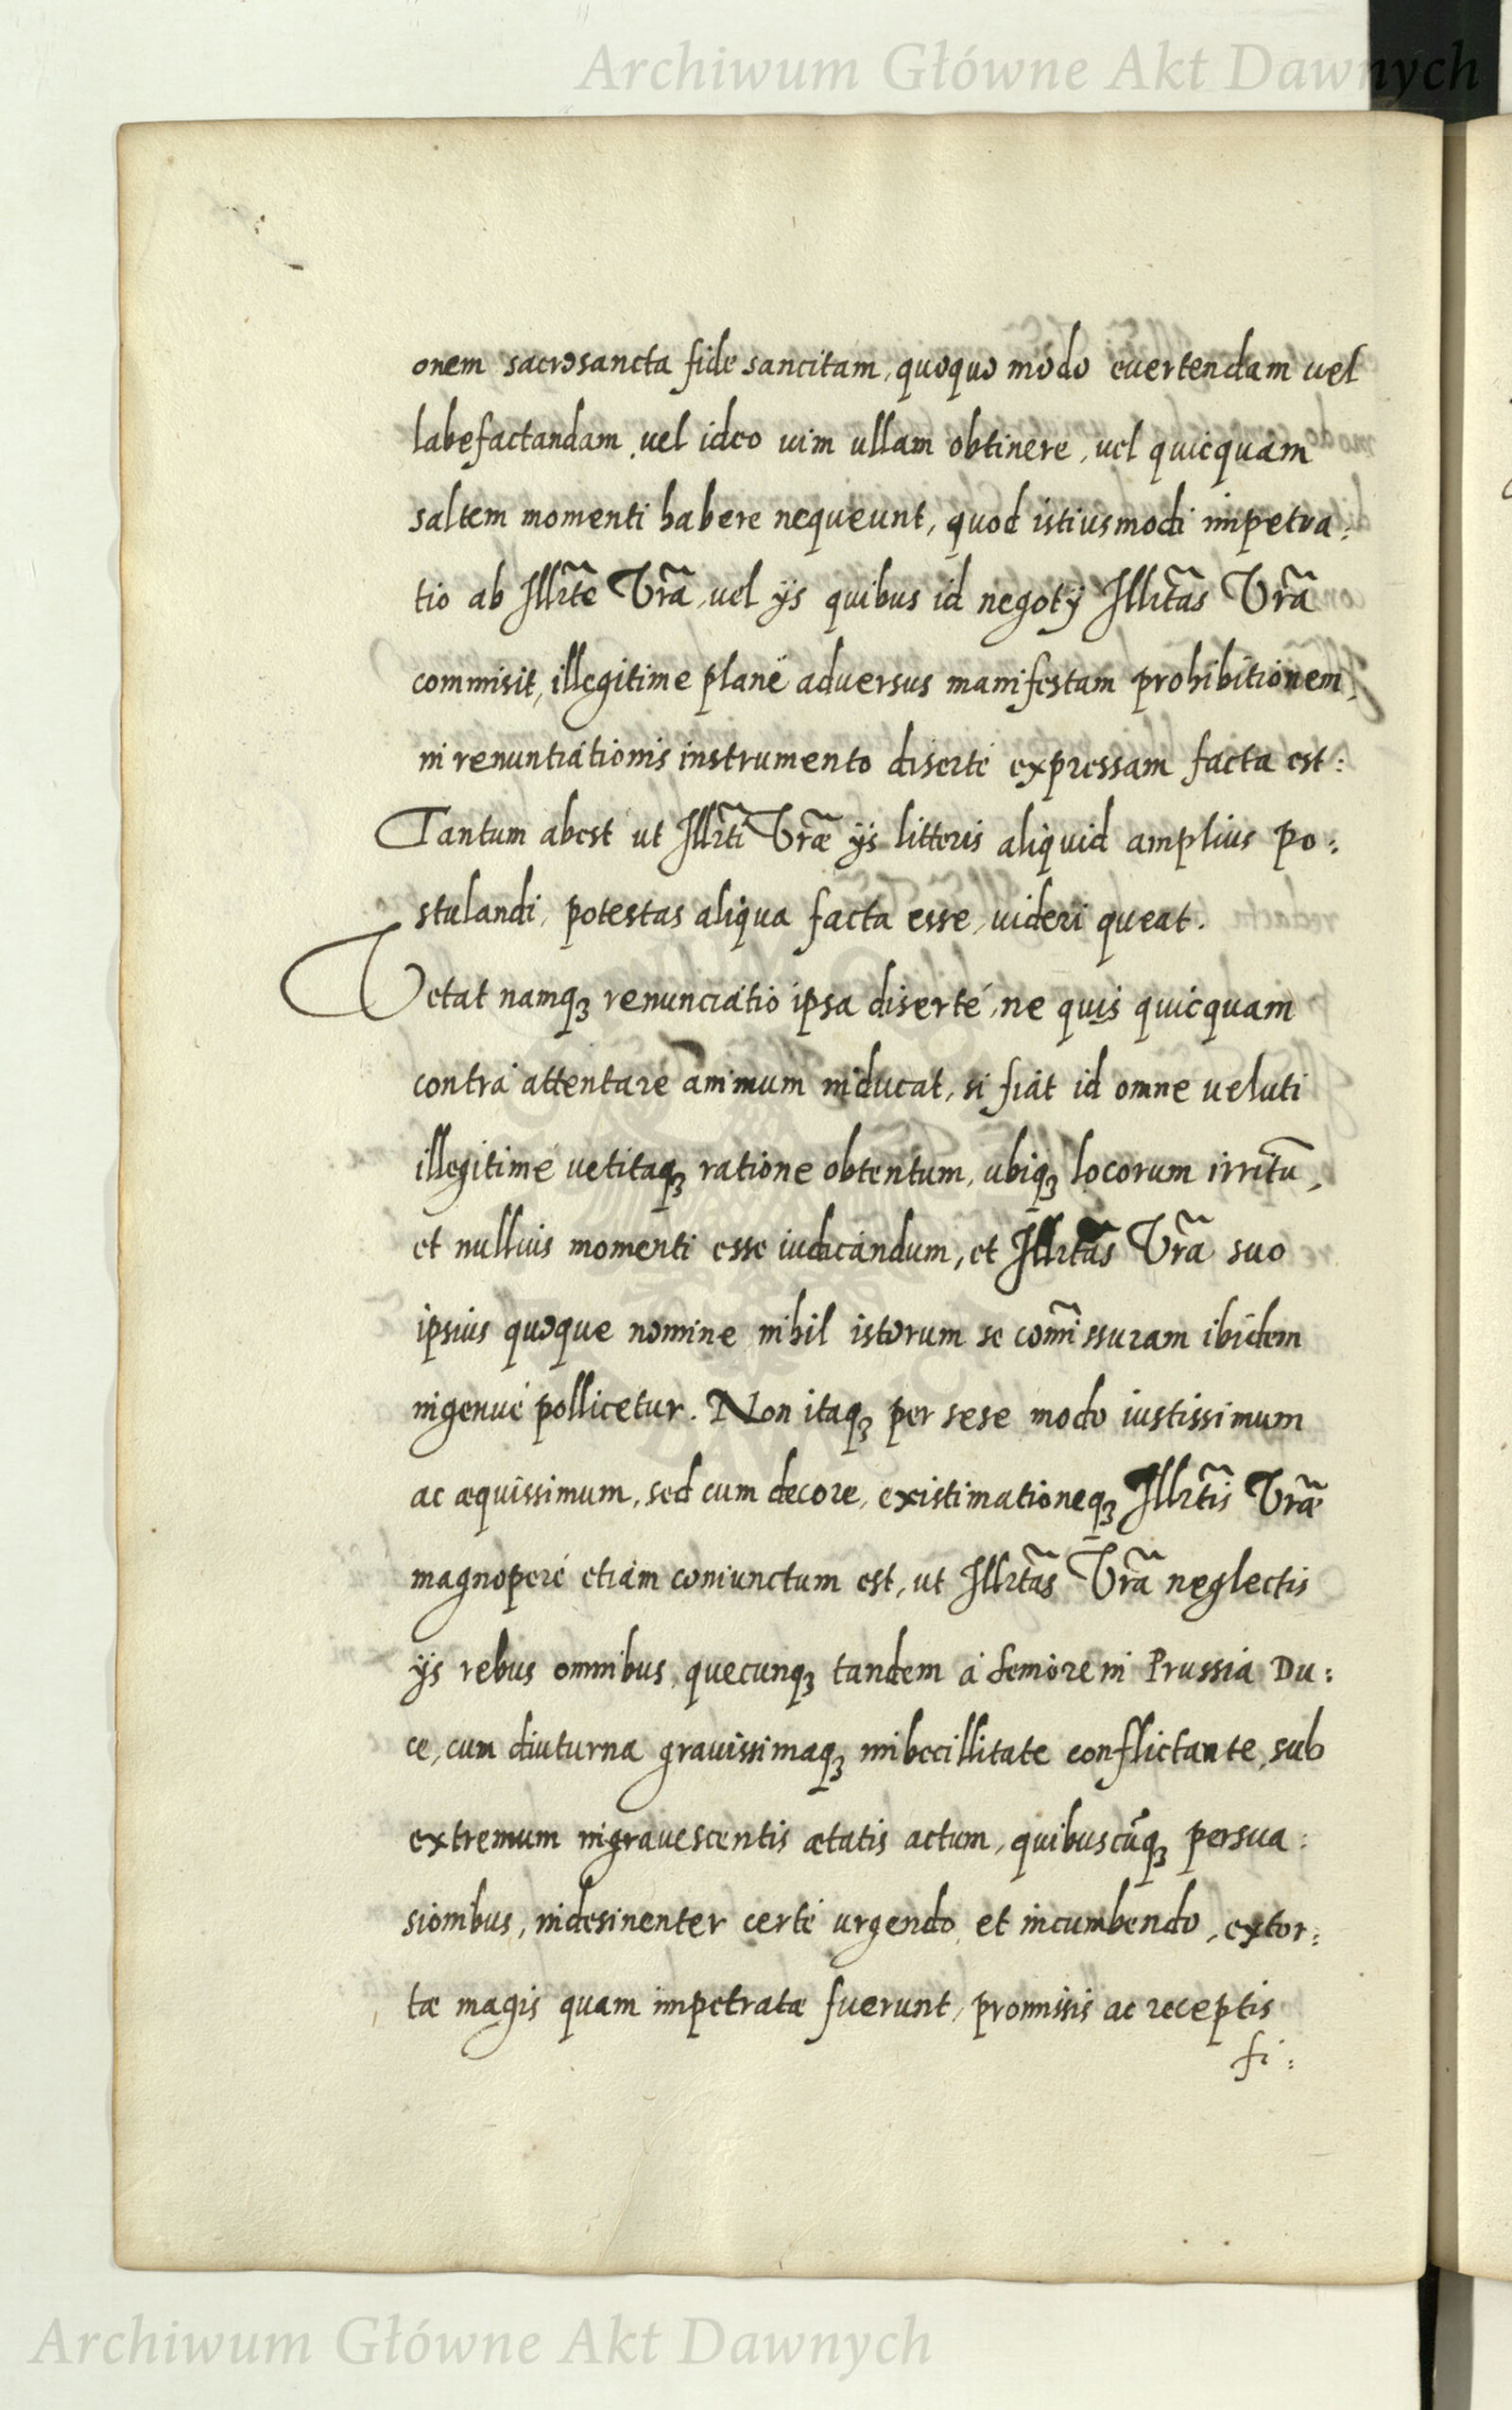 Archiwum Główne Akt Dawnych
onem sacrosancta fide sancitam, quoquo modo euertendam uel
labefactandam, uel ideo uim ullam obtinere, uel quicquam
saltem momenti habere nequeunt, quod istiusmodi impetra:
tio ab Illr̃te Vr̃a, uel ijs quibus id negotij Illr̃tas Vr̃a
commisit, illegitime planè aduersus manifestam prohibitionem,
in renuntiationis instrumento disertè expressam facta est:
Tantum abest ut Illr̃ti Vr̃æ ijs litteris aliquid amplius po:
stulandi, potestas aliqua facta esse, uideri queat.
Vetat namqꝫ renunciatio ipsa disertè, ne quis quicquam
contrà attentare animum inducat, si fiat id omne veluti
illegitimè vetitaqꝫ ratione obtentum, ubiqꝫ locorum irritũ,
et nullius momenti esse iudicandum, et Illr̃tas Vr̃a suo
ipsius quoque nomine nihil istorum se com̃issuram ibidem
ingenuè pollicetur. Non itaqꝫ per sese modo iustissimum
ac æquissimum, sed cum decore, existimationeqꝫ Illr̃tis Vr̃æ
magnoperè etiam coniunctum est, ut Illr̃tas Vr̃a neglectis
ijs rebus omnibus, quecunqꝫ tandem à seniore in Prussia Du:
ce, cum diuturna grauissimaqꝫ imbecillitate conflictante, sub
extremum ingrauescentis ætatis actum, quibuscũqꝫ persua:
sionibus, indesinenter certè urgendo et incumbendo, extor:
tæ magis quam impetratæ fuerunt, promissis ac receptis
fi:
Archiwum Główne Akt Dawnych